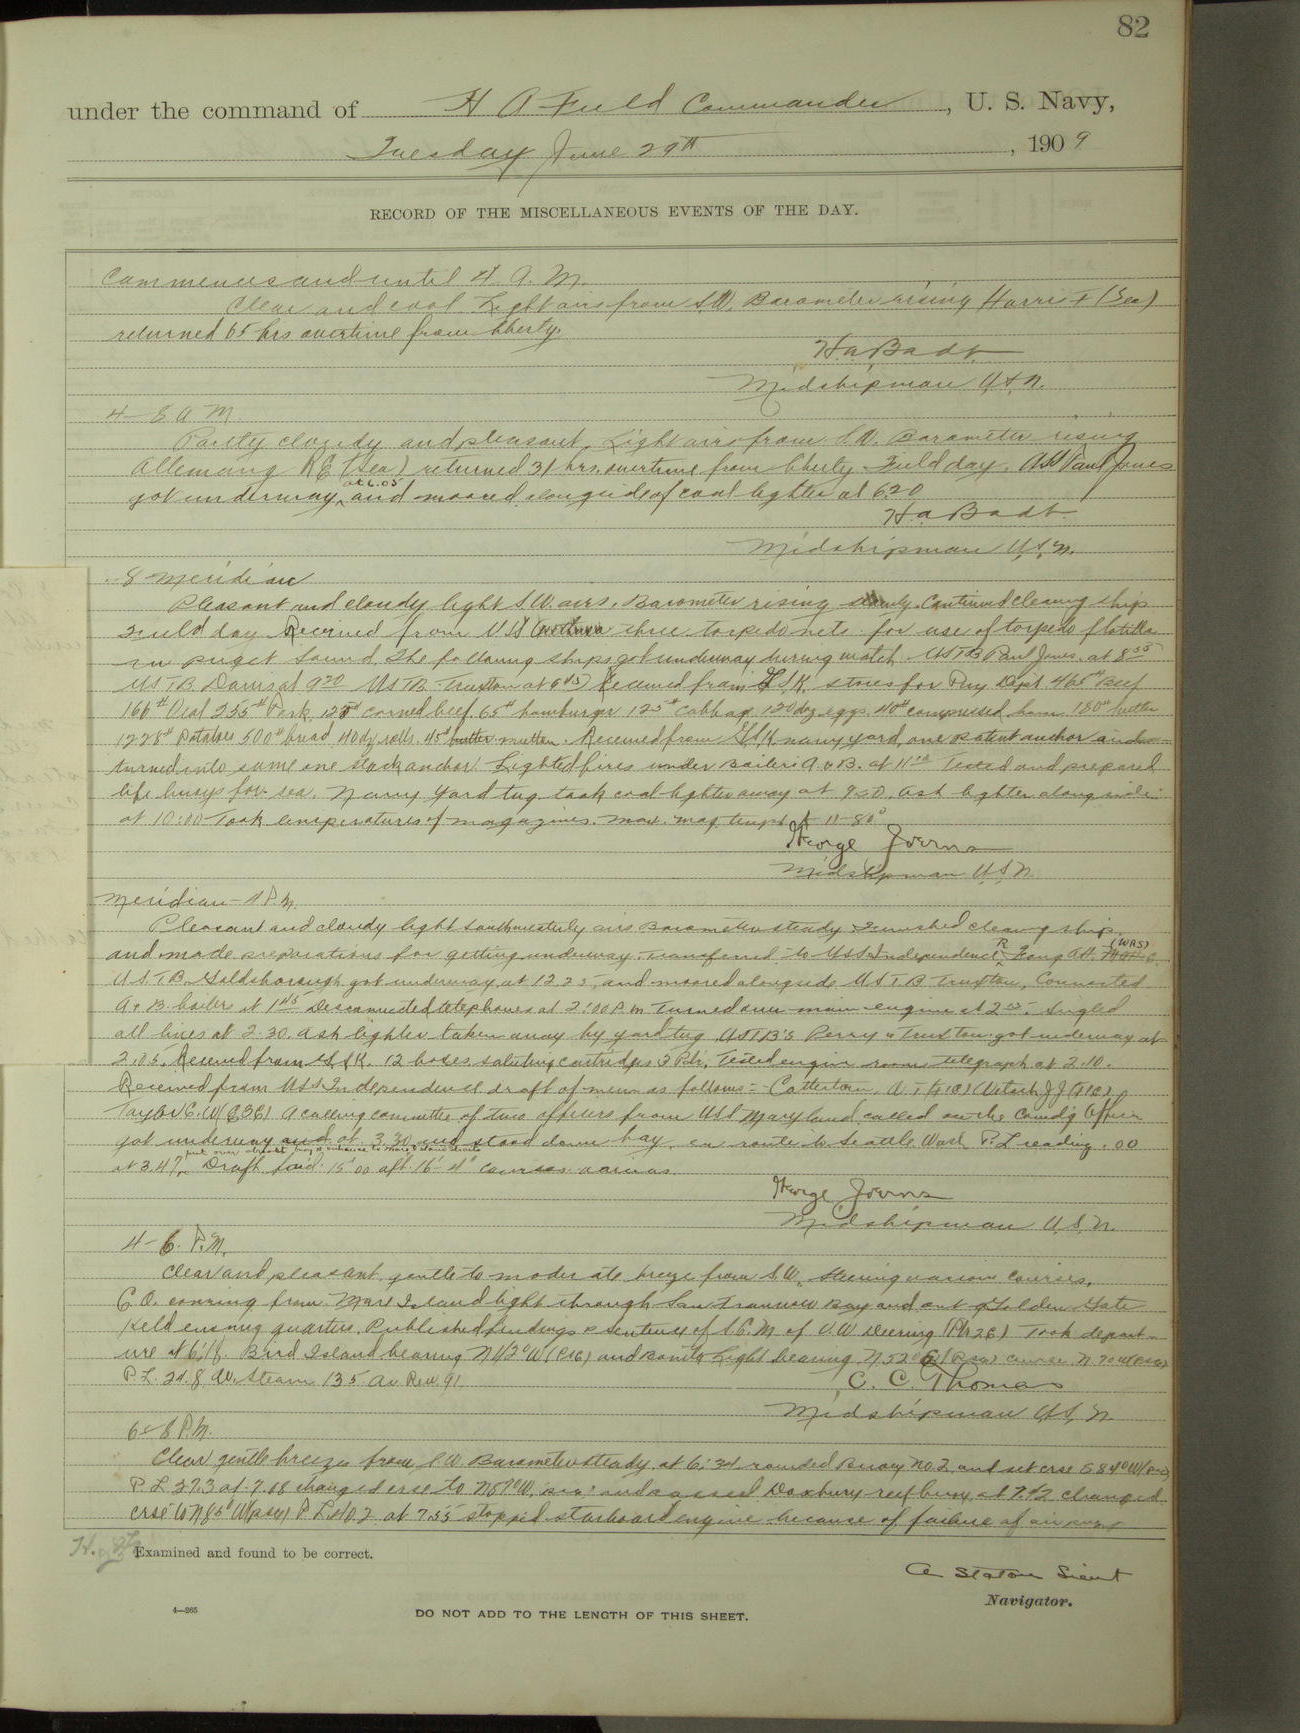 82
under the command of H A Field Commander, U. S. Navy,
Tuesday June 29th, 1909
RECORD OF THE MISCELLANEOUS EVENTS OF THE DAY.
Commences and until 4 A. M.
Clear and cool Light airs from S.W. Barometer rising Harris F (Sea)
returned 65 hrs overtime from liberty.
H a Badt
Midshipman U.S.N.
4-8 A M
Partly cloudy and pleasant. Light airs from S.W. Barometer rising
Allemang R E (Sea) returned 31 hrs. overtime from liberty. Field day. USS Paul Jones
got underway at 6.05 and moored alongside of coal lighter at 6.20
H a Badt
Midshipman U.S.N.
8 Meridian
Pleasant and cloudy light S.W. airs. Barometer rising Continued cleaning ship
Field day Received from USS three torpedo nets for use of torpedo flotilla
in Puget Sound. The following ships got underway during watch. USTB Paul Jones at 8 55
USTB. Davis at 9 20 USTB Truxtun at Received from GSK. stores for Pay Dept 465# Beef
166# Veal 255# Pork 125# corned beef 65# hamburger 125# cabbage 120 doz eggs 40# compressed ham 180# butter
1228# Potatoes 500# bread 40 dz rolls 45# butter mutton. Received from GSK navy yard, one patent anchor and
turned into same one stock anchor. Lighted fires under Boilers A & B. at 11 Tested and prepared
life buoys for sea. Navy Yard tug took coal lighter away at 9 50. Ash lighter alongside
at 10:00 Took temperatures of magazines. Max. mag. temp 11-80°
George Joerns
Midshipman U.S.N.
Meridian-4 P.M.
Pleasant and cloudy light southwesterly airs Barometer steady Finished cleaning ship
and made preparations for getting underway. Transferred to USS Independence R Long A.H. (WAS)
U.S.T.B. Goldsborough got underway at 12 25, and moored alongside USTB Truxtun, Connected
A & B boilers at 1 45 Disconnected telephones at 2:00 P.M Turned over main engine at 2 . Singled
all lines at 2.30. Ash lighter taken away by yard tug. USTB's Perry & Truxtun got underway at
2.05. Received from GSK. 12 boxes saluting cartridges 3 Pdr. Tested engine room telegraph at 2.10.
Received from USS Independence draft of men as follows:- Catterton, Wetsch J J
Taylor C. W A calling committee of two officers from USS Maryland called on the Comd'g Officer
got underway and at 3.30 and stood down bay, en route to Seattle Wash P.L reading .00
at 3.47, Draft for'd. 15' 00 aft 16' 4" courses various
George Joerns
Midshipman U.S.N.
4-6. P.M.
Clear and pleasant gentle to moderate breeze from S.W. Steering various courses,
C.O. conning from Mare Island light through San Francisco Bay and out of Golden Gate
Held evening quarters. Published findings & sentence of S.C.M of V W Deering Took depart-
ure at 6; Bird Island bearing N 1/2° W (psc) and Bonita Light bearing N 52° E (psc) course N 70 W (psc)
P L. 24.8 Av. Steam 135 Av Rev. 91
C. C. Thomas
Midshipman U.S.N
6-8 P.M.
Clear gentle breeze from S.W. Barometer steady at 6:34 rounded Buoy No 2 and set crse S 84° W (psc)
P L 27.3 at 7.08 changed crse to N 57° W. (psc) and passed Duxbury reef buoy, at 7.42 changed
crse to N 85° W (psc) P L 40.2 at 7.55 stopped starboard engine because of failure of air pump
Examined and found to be correct.
Navigator.
4—265
DO NOT ADD TO THE LENGTH OF THIS SHEET.